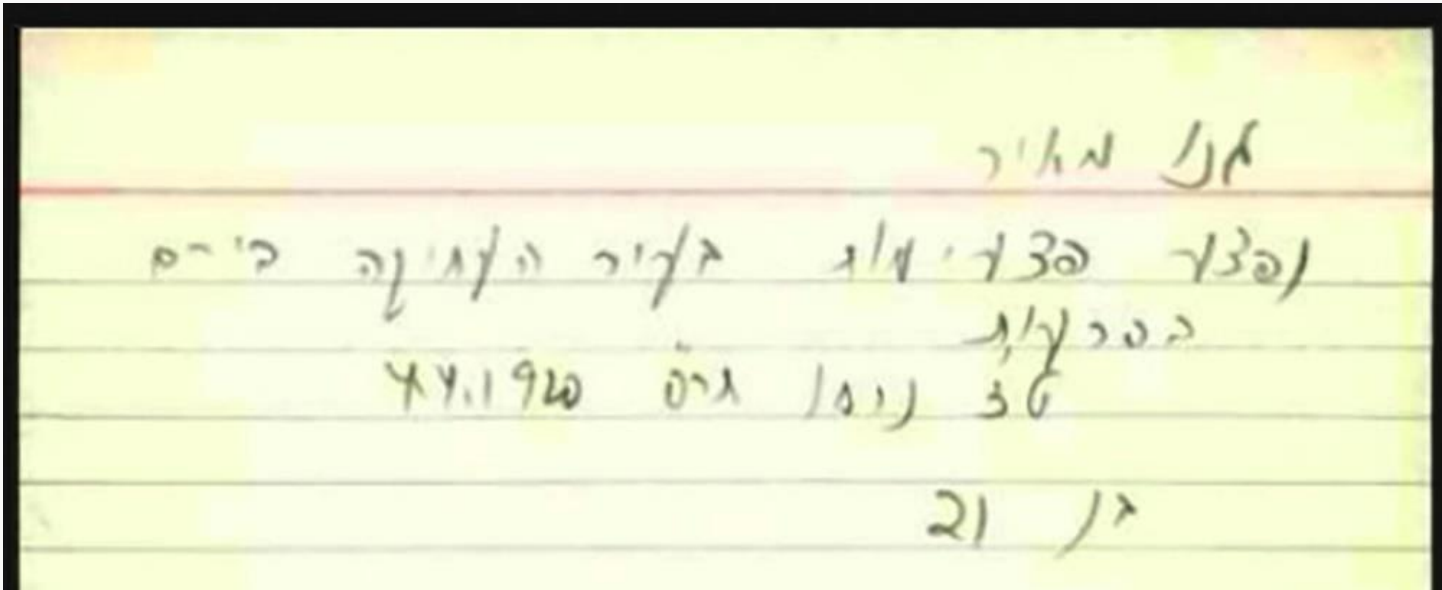 גנו מאיר
נפצע פצעי מות בעיר העתיקה בי-ם
בפרעות
טז ניסן תרפ 4.4.1920
בן 21